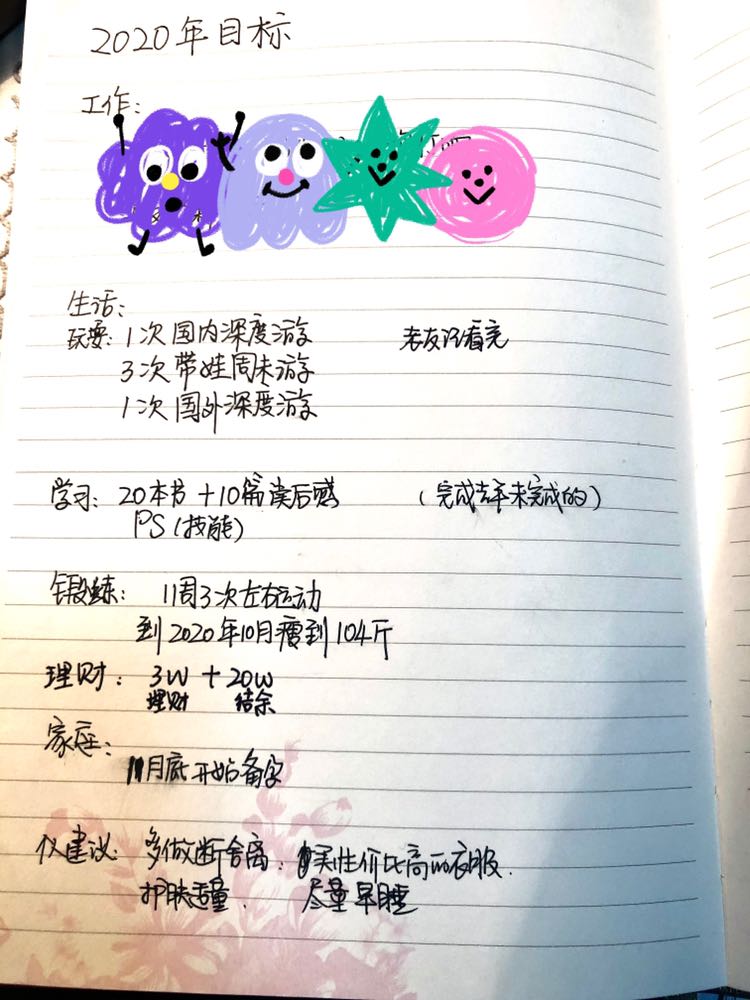 2020年目标
工作:
生活:
玩耍: 1次国内深度游 老友记看完
3次带娃周末游
1次国外深度游
学习: 20本书+10篇读后感 (完成去年未完成的)
PS(技能)
锻炼: 1周3次左右运动
到2020年10月瘦到104斤
理财: 3W+20W
理财 结余
家庭:
11月底开始备孕
仪建议: 多做断舍离. 买性价比高的衣服.
护肤适量. 尽量早睡